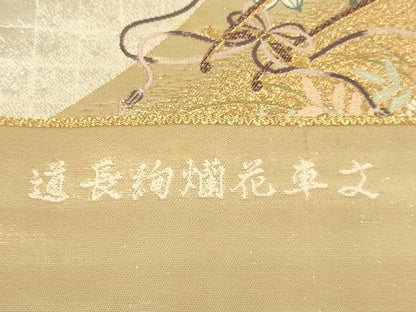 道長絢爛花車文